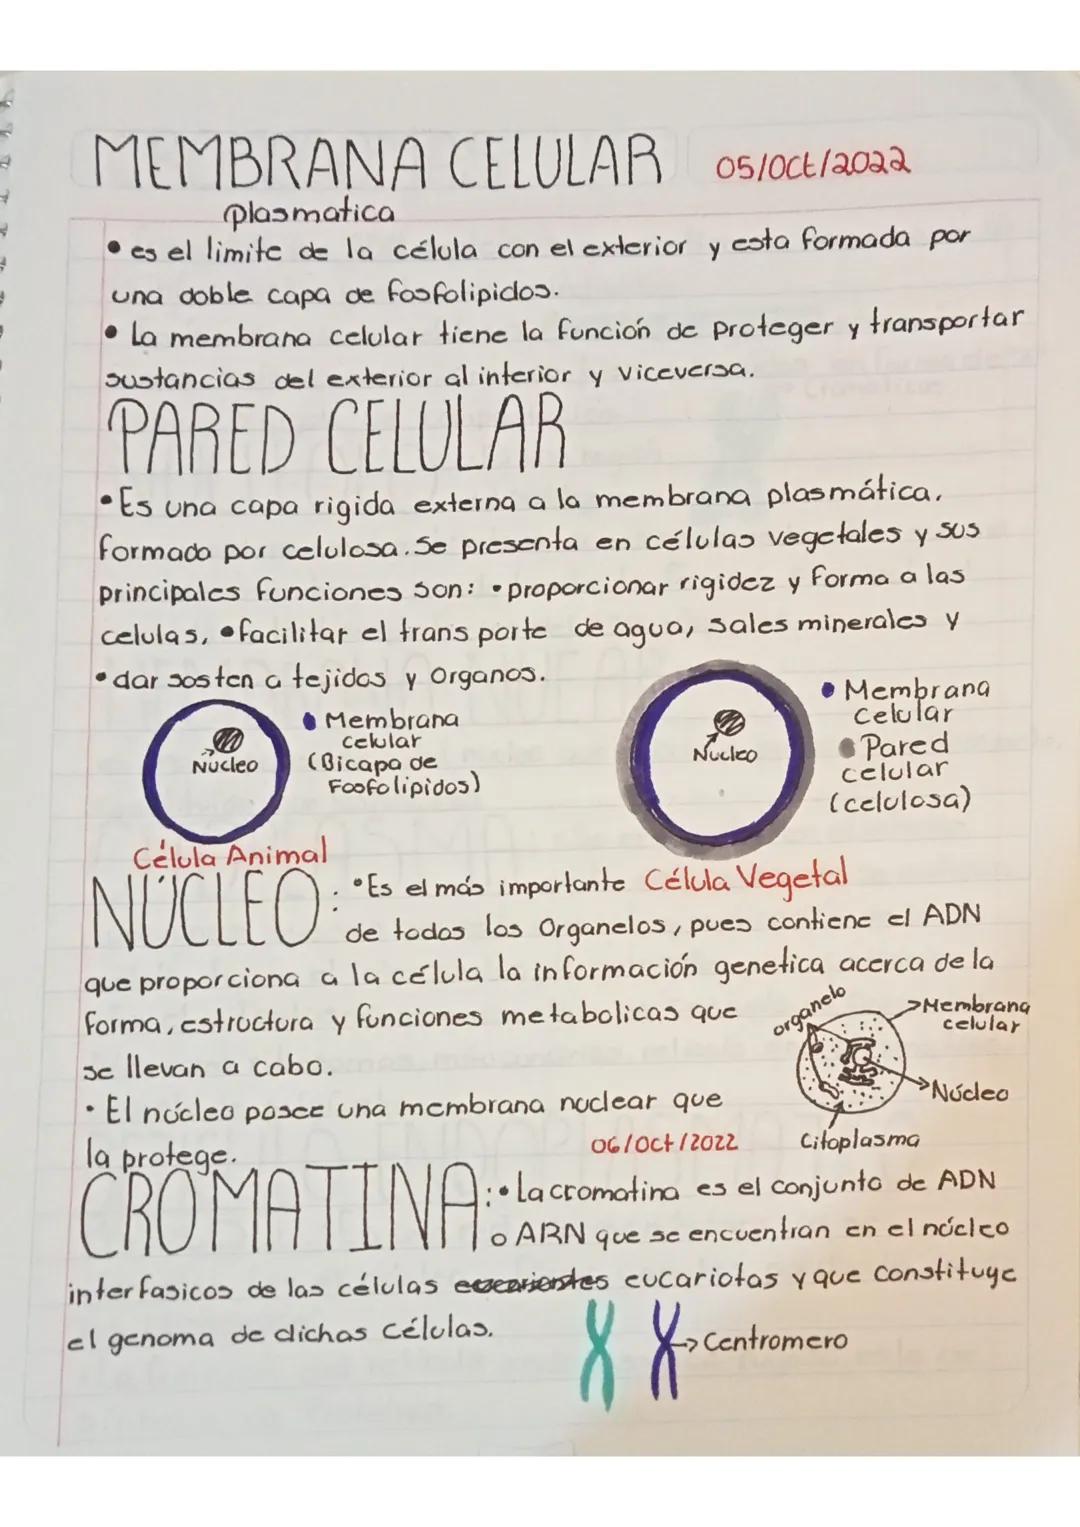 MEMBRANA CELULAR 05/Oct/2022
plasmatica
• es el limite de la célula con el exterior y esta formada por
una doble capa de fosfolipidos.
• La membrana celular tiene la función de proteger y transportar
sustancias del exterior al interior y viceversa.
PARED CELULAR
• Es una capa rigida externa a la membrana plasmática,
formado por celulosa. Se presenta en células vegetales y sus
principales funciones son: • proporcionar rigidez y forma a las
celulas, • facilitar el transporte de agua, sales minerales y
• dar sosten a tejidos y Organos.
• Membrana
celular
(Bicapa de
Fosfolipidos)
Núcleo
Célula Animal
• Membrana
celular
• Pared
celular
(celulosa)
Nucleo
Célula Vegetal
NÚCLEO: • Es el más importante
de todos los Organelos, pues contiene el ADN
que proporciona a la célula la información genetica acerca de la
forma, estructura y funciones metabolicas que
se llevan a cabo.
• El núcleo posee una membrana nuclear que
la protege.
organelo
Membrana
celular
Núcleo
Citoplasma
06/Oct/2022
CROMATINA: • La cromatina es el conjunto de ADN
o ARN que se encuentran en el núcleo
interfasicos de las células eucariotas y que constituye
el genoma de dichas células.
Centromero